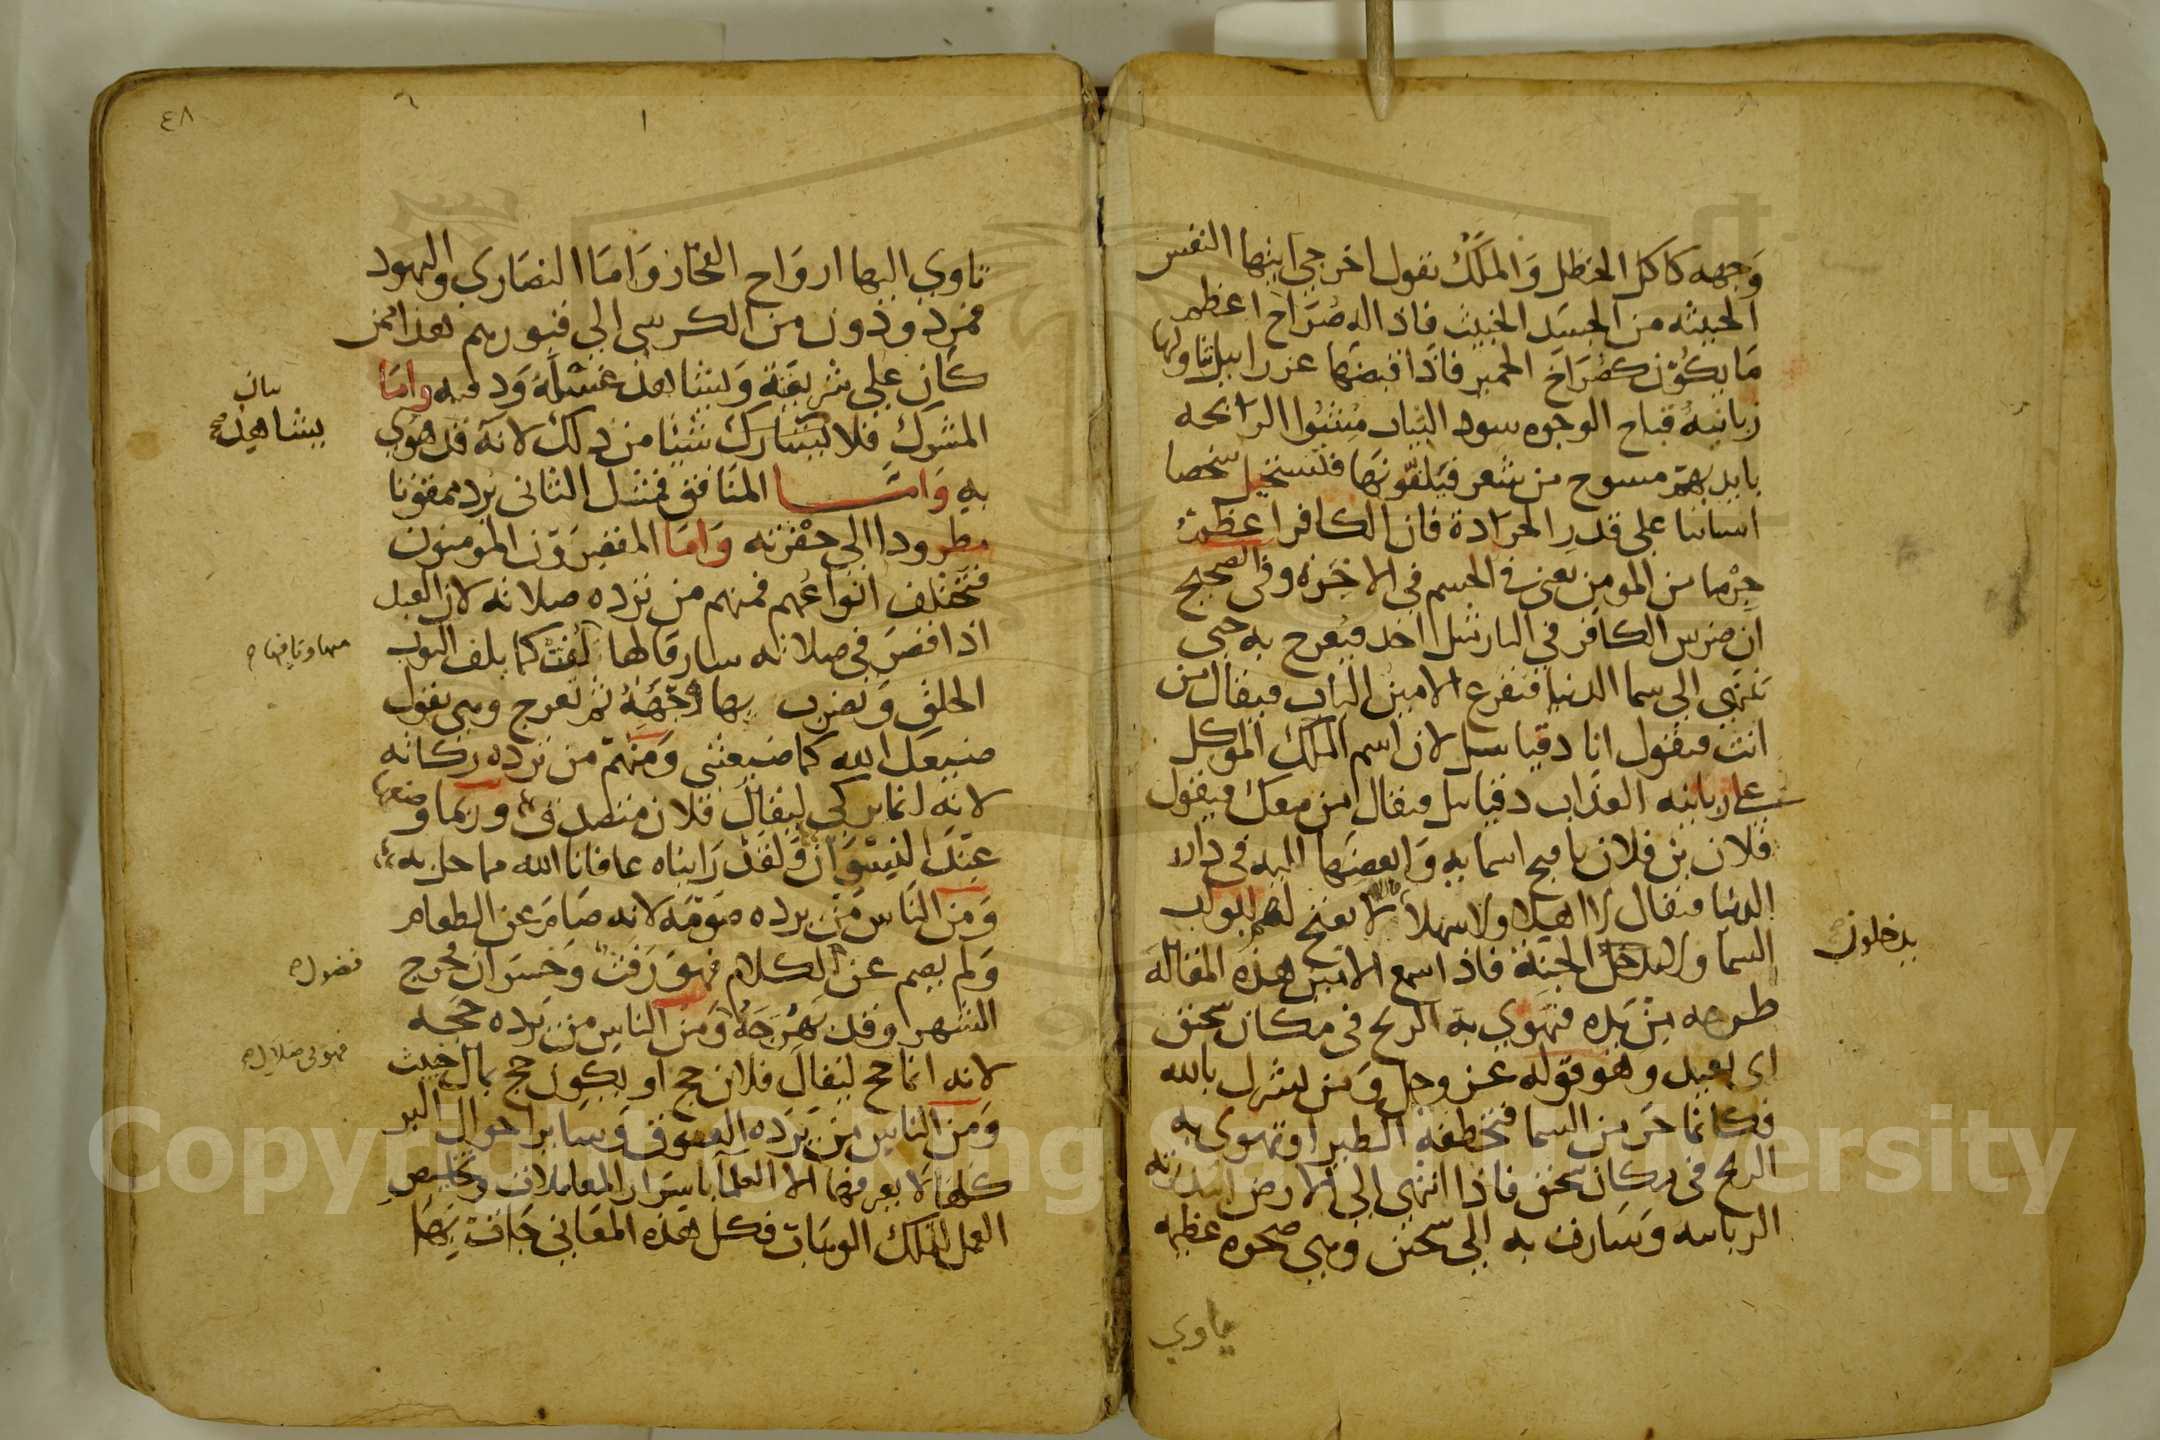 وجهه كاكل الحنظل والملك يقول اخرجي ايتها النفس
الخبيثة من الجسد الخبيث فاذا له صراخ اعظم
ما يكون كصراخ الحمير فاذا قبضها عزرائيل ناولها
زبانية قباح الوجوه سود الثياب منتنوا الرائحه
بايديهم مسوح من شعر فيلفونها فتستحيل شخصا
انسانا على قدر الجرادة فان الكافر اعظم
جرما من المومن يعني في الجسم في الاخرة وفي الصحيح
ان ضرس الكافر في النار مثل احد فيعرج به حتى
تنتهي الى سما الدنيا فيقرع الامين الباب فيقال من
انت فيقول انا دقيائيل لان اسم الملك الموكل
على زبانية العذاب دقيائيل فيقال من معك فيقول
فلان بن فلان باقبح اسمايه وابغضها اليه في دار
الدنيا فيقال لا اهلا ولا سهلا لا تفتح لهم ابواب
السما ولا يدخل الجنة فاذا سمع الامين هذه المقالة
يدخلون
طرحه من يده فتهوي به الريح في مكان سحيق
اى بعيد وهو قوله عز وجل ومن يشرك بالله
فكانما خر من السما فتخطفه الطير او تهوى به
الريح في مكان سحيق فاذا انتهى الى الارض ابتدرته
الزبانيه وسارت به الى سجين وهي صخره عظيمه
تاوي
٤٨
تاوي اليها ارواح الفجار واما النصارى واليهود
فمردودون من الكرسى الى قبورهم هذا من
كان على شريعته ويشاهد غسله ودفنه واما
بيان
يشاهد صح
المشرك فلا يشارك شيئا من ذلك لانه قد هوي
به واما المنافق فمثل الثاني يرد ممقوتا
مطرودا الى حفرته واما المقصرون المومنون
فتختلف انواعهم فمنهم من ترده صلاته لان العبد
اذا قصر في صلاته سارقا لها لفت كما يلف الثوب
الخلق وتضرب بها وجهه ثم تعرج وهي تقول
ضيعك الله كما ضيعتني ومنهم من ترده زكاته
لانه انما يزكي ليقال فلان متصدق وربما وضعها
عند النسوان ولقد رايناه عافانا الله مما حل به
ومن الناس من يرده صومه لانه صام عن الطعام
ولم يصم عن الكلام فهو رفث وخسران فخرج
الشهر وقد بهرجه ومن الناس من يرده حجه
لانه انما حج ليقال فلان حج او يكون حج بمال خبيث
ومن الناس من يرده العقوق وساير احوال البر
كلها لا يعرفها الا العلما باسرار المعاملات وتخليص
العمل للملك الوهاب فكل هذه المعاني جات بها